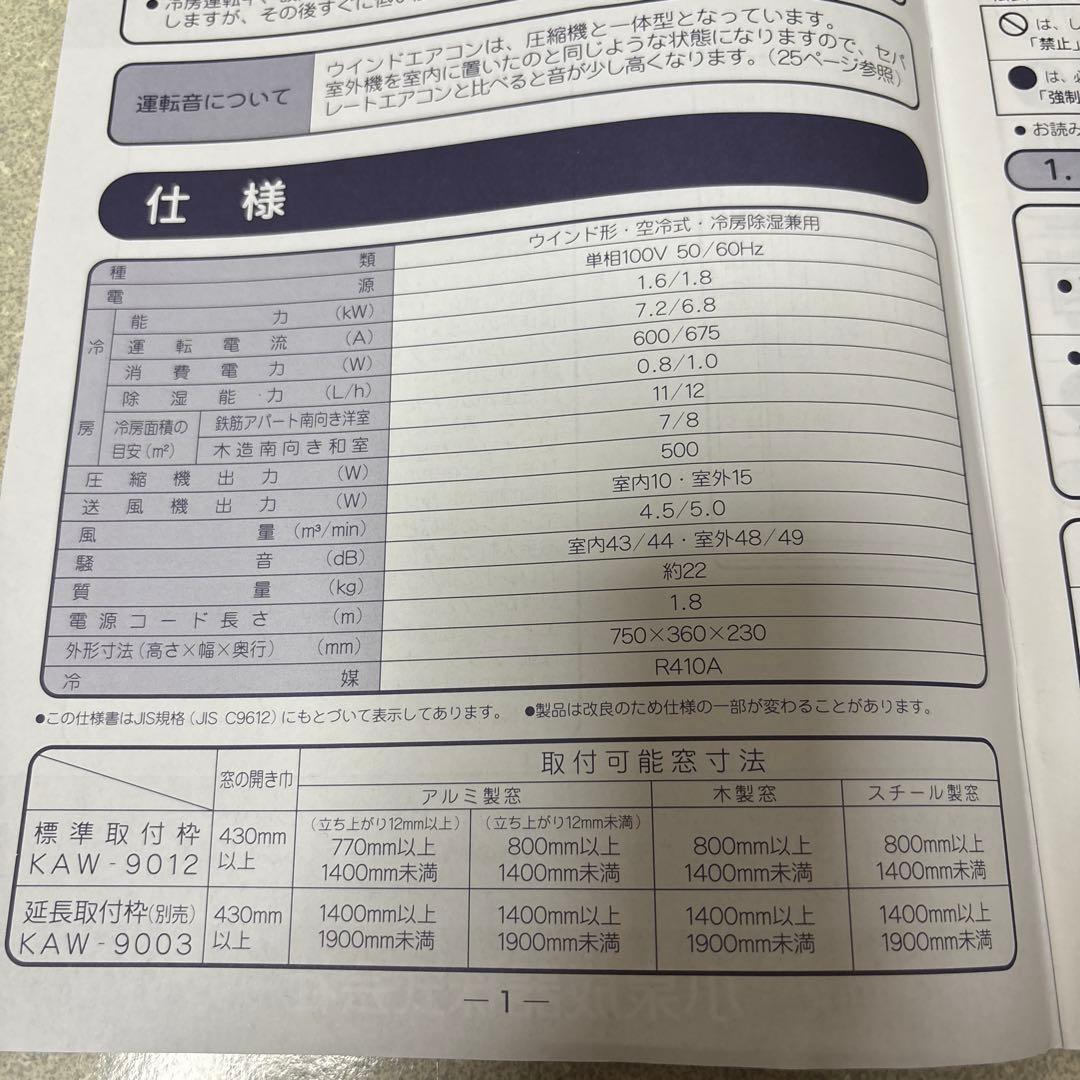 しますが、その後すぐに
運転音について
ウインドエアコンは、圧縮機と一体型となっています。
室外機を室内に置いたのと同じような状態になりますので、セパ
レートエアコンと比べると音が少し高くなります。(25ページ参照)
仕様
種類 ウインド形・空冷式・冷房除湿兼用
電源 単相100V 50/60Hz
冷房
能力 (kW) 1.6/1.8
運転電流 (A) 7.2/6.8
消費電力 (W) 600/675
除湿能力 (L/h) 0.8/1.0
冷房面積の目安(m²) 鉄筋アパート南向き洋室 11/12
木造南向き和室 7/8
圧縮機出力 (W) 500
送風機出力 (W) 室内10・室外15
風量 (m³/min) 4.5/5.0
騒音 (dB) 室内43/44・室外48/49
質量 (kg) 約22
電源コード長さ (m) 1.8
外形寸法(高さ×幅×奥行) (mm) 750×360×230
冷媒 R410A
●この仕様書はJIS規格(JIS C9612)にもとづいて表示してあります。 ●製品は改良のため仕様の一部が変わることがあります。
窓の開き巾 取付可能窓寸法
アルミ製窓 木製窓 スチール製窓
(立ち上がり12mm以上) (立ち上がり12mm未満)
標準取付枠 430mm 770mm以上 800mm以上 800mm以上 800mm以上
KAW-9012 以上 1400mm未満 1400mm未満 1400mm未満 1400mm未満
延長取付枠(別売) 430mm 1400mm以上 1400mm以上 1400mm以上 1400mm以上
KAW-9003 以上 1900mm未満 1900mm未満 1900mm未満 1900mm未満
—1—
は、し
「禁止」
は、必
「強制
●お読み
1.